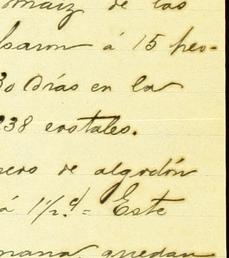 maiz de las
lsaron á 15 pes-
30 Dias en la
238 costales.
nero de algodón
á 1 1/2 d = Este
mana, quedan